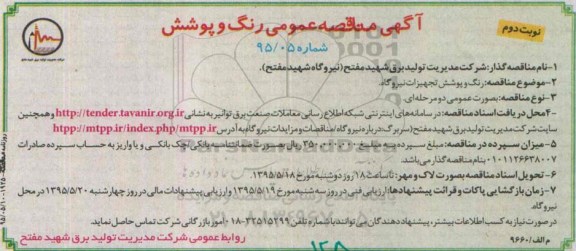 نوبت دوم
آگهی مناقصه عمومی رنگ و پوشش
شماره ۹۵/۰۵
۱-نام مناقصه گذار: شرکت مدیریت تولید برق شهید مفتح (نیروگاه شهید مفتح).
۲-موضوع مناقصه: رنگ و پوشش تجهیزات نیروگاه.
۳-نوع مناقصه: بصورت عمومی دو مرحله ای.
۴-محل دریافت اسناد مناقصه: در سامانه های اینترنتی شبکه اطلاع رسانی معاملات صنعت برق توانیر به نشانی http://tender.tavanir.org.ir و همچنین
سایت شرکت مدیریت تولید برق شهید مفتح (سربرگ درباره نیروگاه/مناقصات و مزایدات نیروگاه به آدرس http://mtpp.ir/index.php/mtpp.ir
۵-میزان سپرده در مناقصه: مبلغ سپرده ریال بصورت ضمانتنامه بانکی، چک بانکی و یا واریز به حساب سپرده صادرات
بنام مناقصه گذار می باشد.
۶-تحویل اسناد مناقصه بصورت لاک و مهر: تا ساعت ۱۸ روز دوشنبه مورخ ۱۳۹۵/۵/۱۸.
۷-زمان بازگشایی پاکات و قرائت پیشنهادها: ارزیابی فنی در روز سه شنبه مورخ ۱۳۹۵/۵/۱۹ و ارزیابی پیشنهادات مالی در روز چهارشنبه ۱۳۹۵/۵/۲۰ در محل
نیروگاه.
در صورت نیاز به کسب اطلاعات بیشتر، پیشنهاد دهندگان می توانند با شماره تلفن ۳۳۵۱۵۲۹۹-۰۱۸ امور بازرگانی شرکت تماس حاصل نماید.
م الف/۹۶۶۰
روابط عمومی شرکت مدیریت تولید برق شهید مفتح